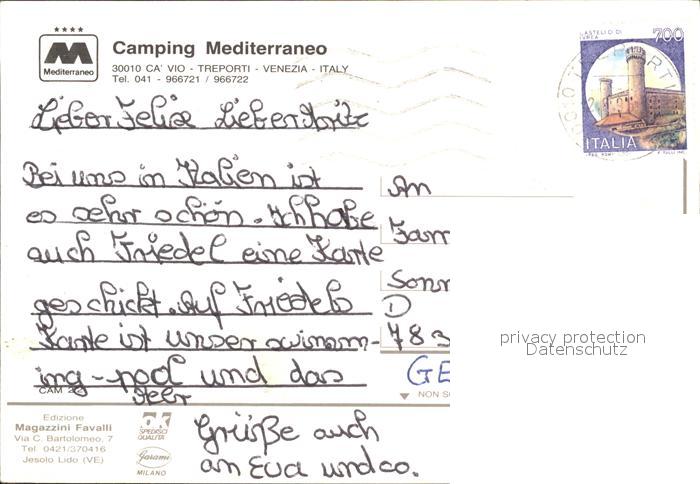 Mediterraneo
Camping Mediterraneo
30010 CA' VIO - TREPORTI - VENEZIA - ITALY
Tel. 041 - 966721 / 966722
CASTELLO DI
IVREA
700
ITALIA
Lieber Felix Lieber Moritz
Bei uns in Italien ist
es sehr schön. Ich habe
auch Friedel eine Karte
geschickt. Auf Friedels
Karte ist unser swimm-
ing-pool und das
Meer
Grüße auch
an Eva und co.
An
Fam
Sonn
D
783
GE
privacy protection
Datenschutz
CAM 22
NON S
Edizione
Magazzini Favalli
Via C. Bartolomeo, 7
Tel. 0421/370416
Jesolo Lido (VE)
SPEDISCI
QUALITÀ
Garami
MILANO